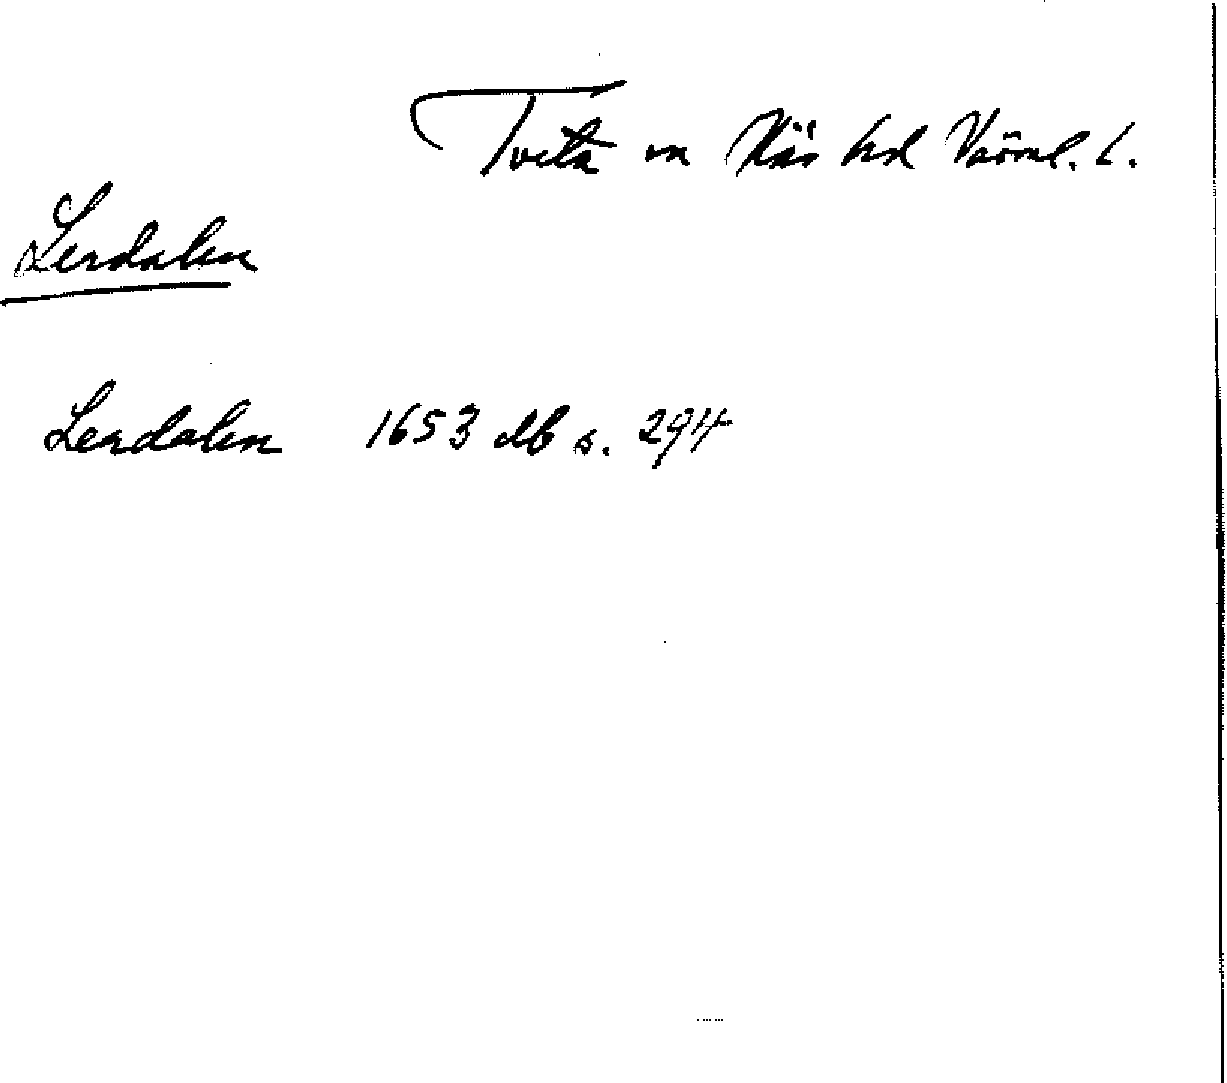 Tveta sn Näs hd Värml. l.
Lerdalen
Lerdalen 1653 Mb s. 294